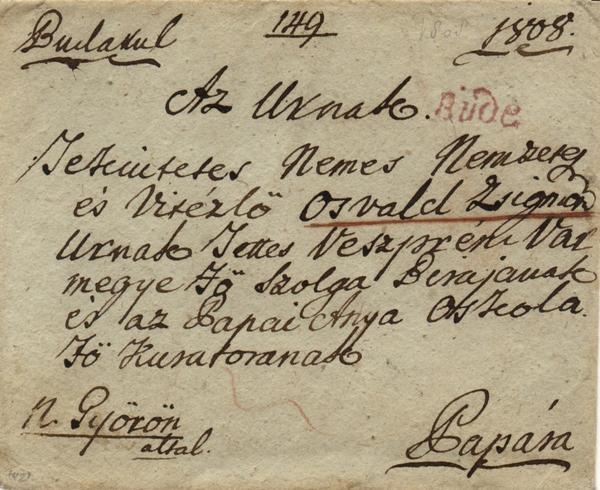 Budárul
149
1808.
Az Urnak.
Bude
Tekintetes Nemes Nemzetes
és Vitézlö Osvald Zsigmond
Urnak Tettes Veszprém Vár
megye Fö Szolga Birájanak
és az Pápai Anya Oskola
Fö Kuratoranak
N. Györön
által.
Pápára